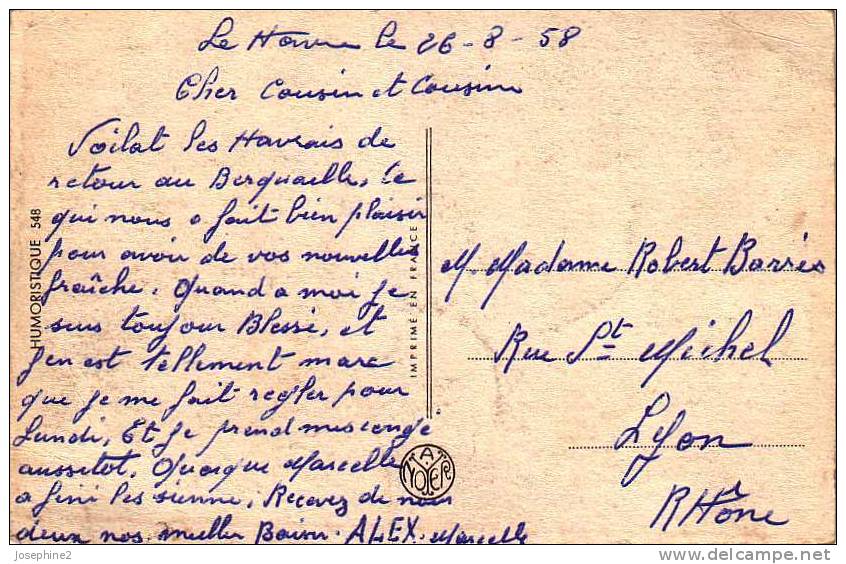 Le Havre le 26-8-58
Cher Cousin et Cousine
Voilat les Havrais de
retour au Berquaille, ce
qui nous a fait bien plaisir
pour avoir de vos nouvelles
fraîche. Quand a moi je
suis toujour Blessé, et
j'en est tellement mare
que je me fait regler pour
Lundi, Et je prend mes congé
aussitot. Quoique Marcelle
a fini les sienne, Recevez de nous
deux nos meiller Baiser. ALEX. Marcelle
HUMORISTIQUE 548
IMPRIMÉ EN FRANCE
M Madame Robert Barrès
Rue St Michel
Lyon
RHône
Josephine2
www.delcampe.net